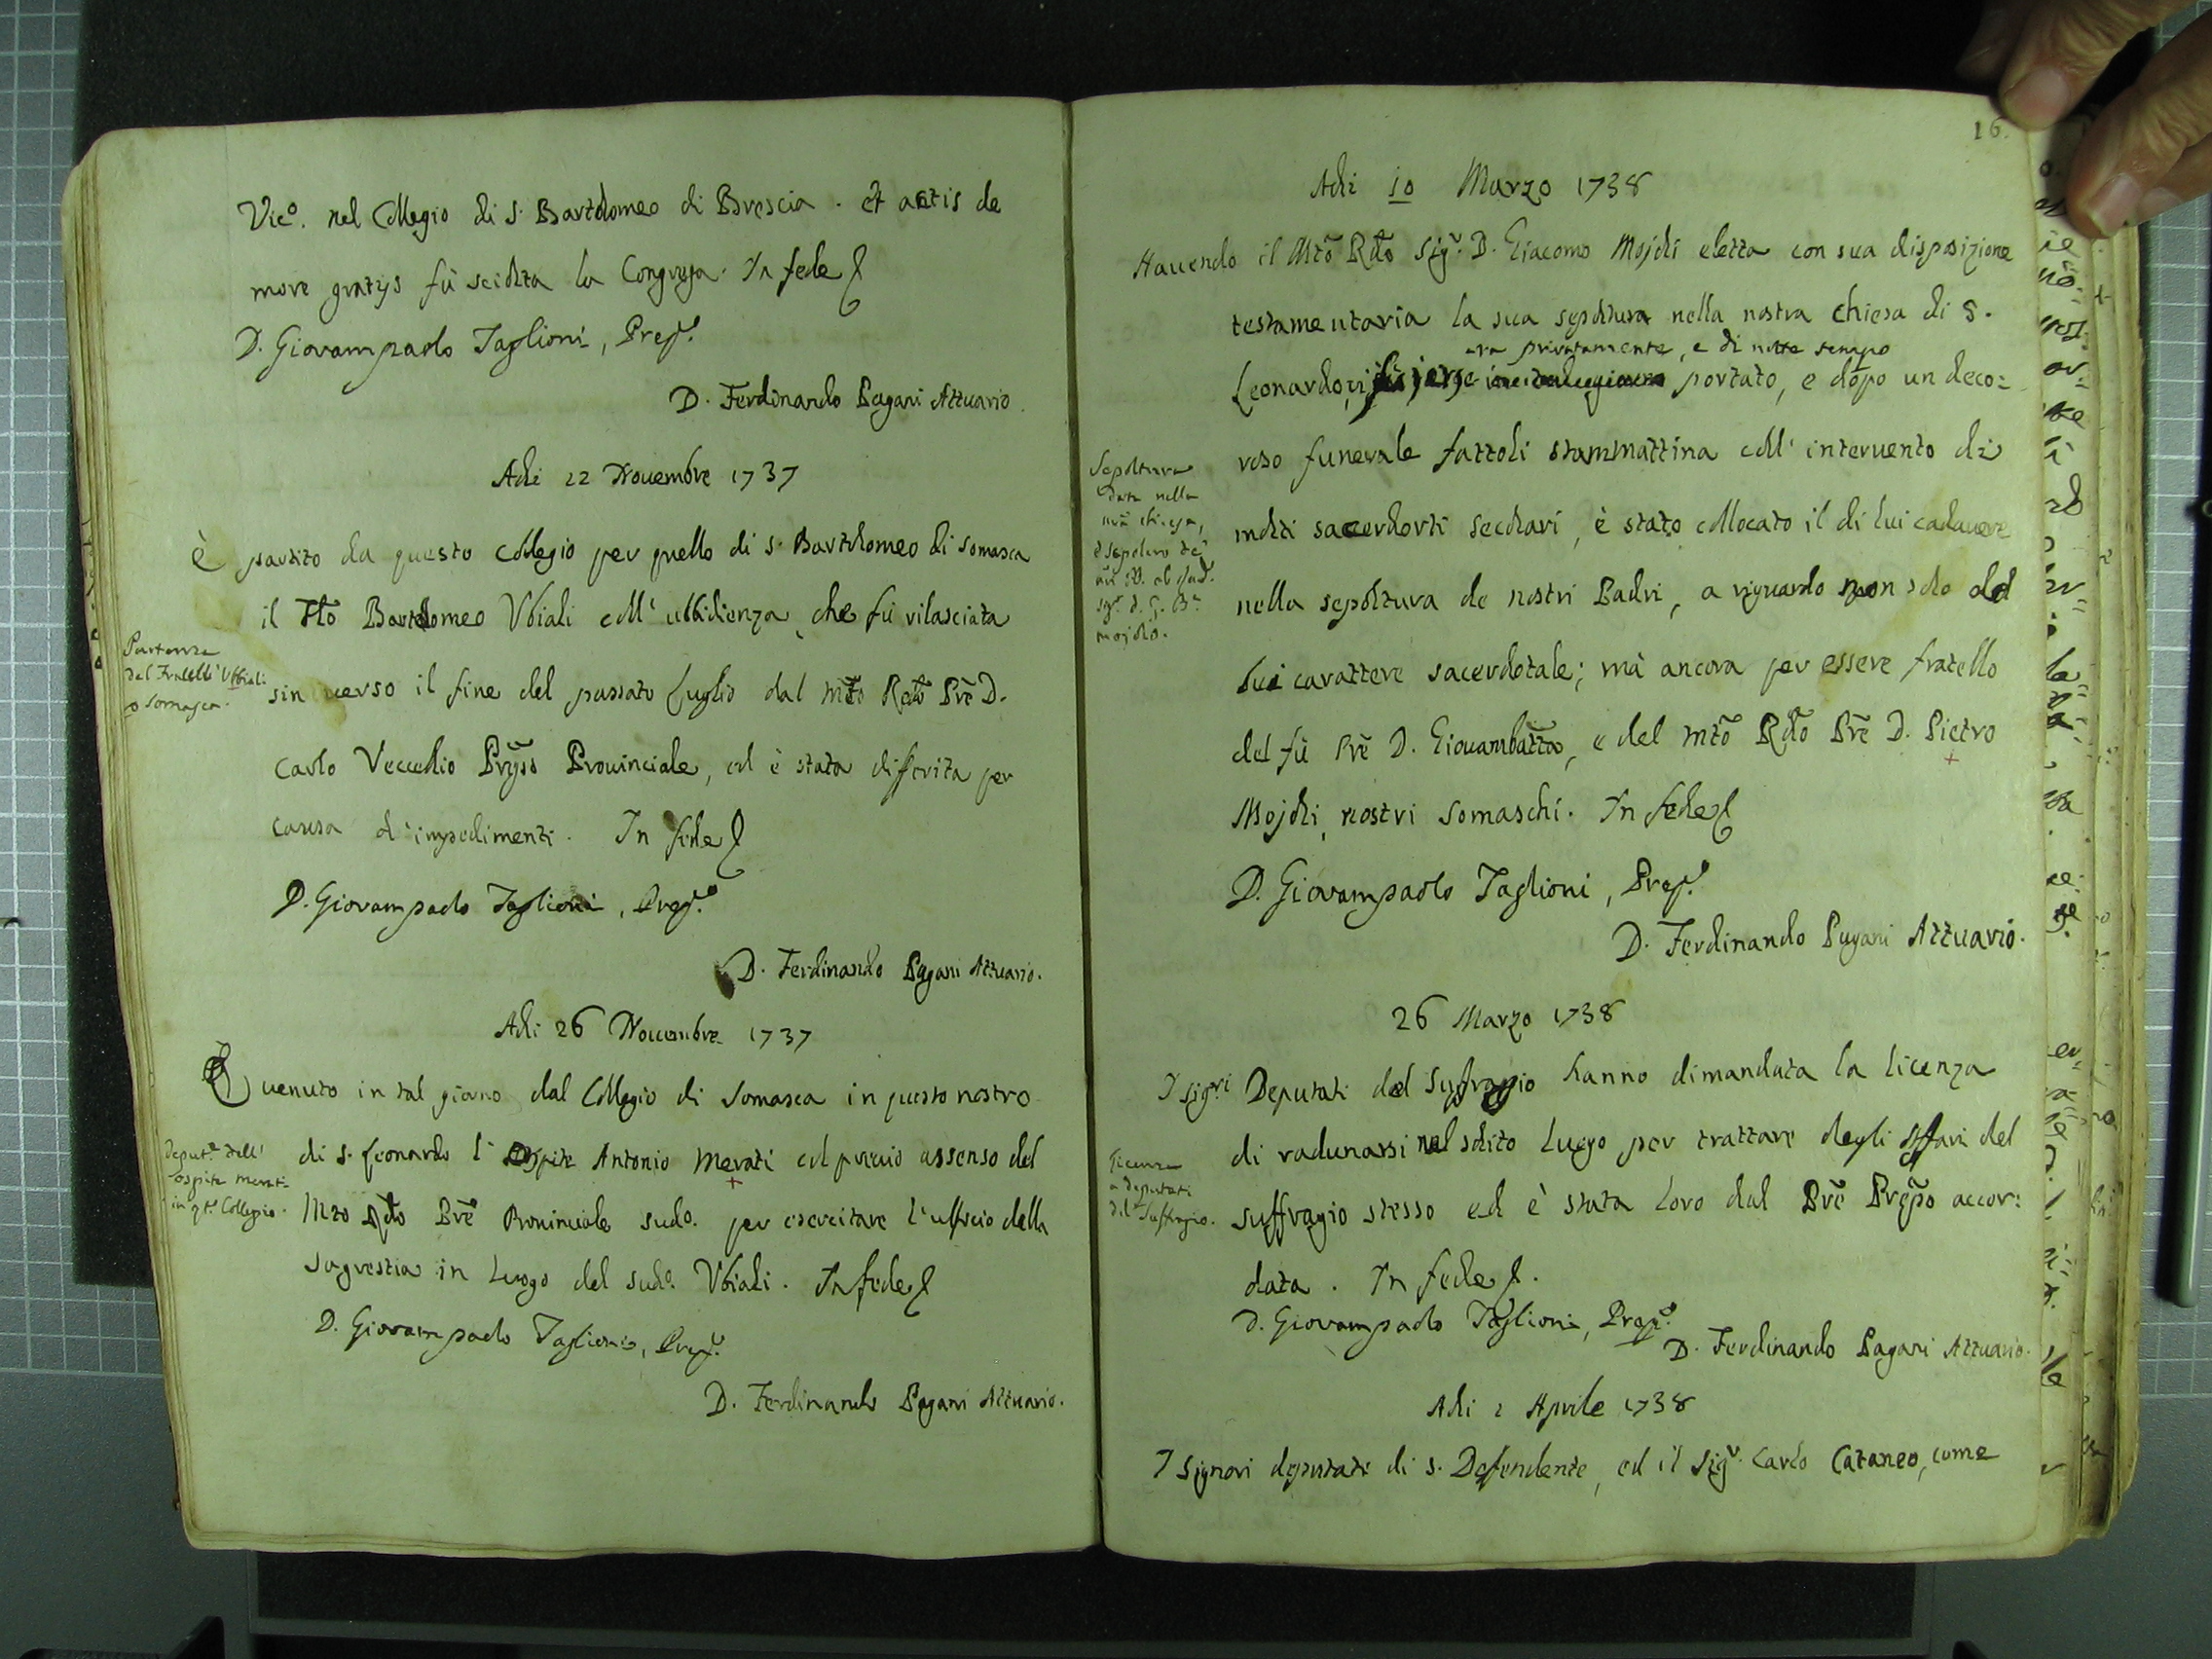 Vic.º nel Collegio di S. Bartolomeo di Brescia. et actis de
more gratijs fù sciolta la Congreg.a In fede
D. Giovampaolo Taglioni, Prep.º
D. Ferdinando Pagani Attuario.
Adi 22 Nouembre 1737
è partito da questo Collegio per quello di S. Bartolomeo di Somasca
il Fllo Bartolomeo Vbiali coll' ubbidienza, che fù rilasciata
Partenza
del Fratello Vbbiali
a Somasca.
sin verso il fine del passato Luglio dal mto Rdo Pre D.
Carlo Vecchio Prpso Prouinciale, ed è stata differita per
causa d'impedimenti. In fede
D. Giovampaolo Taglioni, Prep.º
D. Ferdinando Pagani Attuario.
Adi 26 Nouembre 1737
È uenuto in tal giorno dal Collegio di Somasca in questo nostro
di S. Leonardo l'Ospite Antonio Merati col preuio assenso del
Deput.e dell'
ospite Merati
in q.to Collegio.
Mto Rdo Pre Prouinciale sud.o per esercitare l'ufficio della
sagrestia in luogo del sud.o Vbiali. In fede
D. Giovampaolo Taglioni, Prep.º
D. Ferdinando Pagani Attuario.
16.
Adi 10 Marzo 1738
Hauendo il Mto Rdo Sig.r D. Giacomo Mojoli eletta con sua disposizione
testamentaria la sua sepoltura nella nostra chiesa di S.
privatamente, e di notte tempo
Leonardo, portato, e dopo un deco=
roso funerale fattoli stammattina coll' interuento di
Sepoltura
data nella
nra chiesa,
e sepolcro de'
nri PP. al
mojoli.
molti sacerdoti secolari, è stato collocato il di lui cadauere
nella sepoltura de nostri Padri, a riguardo non solo del
sui carattere sacerdotale; mà ancora per essere fratello
del fù Pre D. Giouambatta, e del mto Rdo Pre D. Pietro
Mojoli, nostri Somaschi. In fede
D. Giovampaolo Taglioni, Prep.º
D. Ferdinando Pagani Attuario.
26 Marzo 1738
I Sig.ri Deputati del Suffragio hanno dimandata la licenza
di radunarsi nel solito luogo per trattare degli affari del
Licenza
a deputati
del Suffragio.
suffragio stesso ed è stata loro dal Pre Prepo accor:
data. In fede
D. Giovampaolo Taglioni, Prep.º
D. Ferdinando Pagani Attuario.
Adi 2 Aprile 1738
I Signori deputati di S. Defendente, ed il Sig.r Carlo Cataneo, come